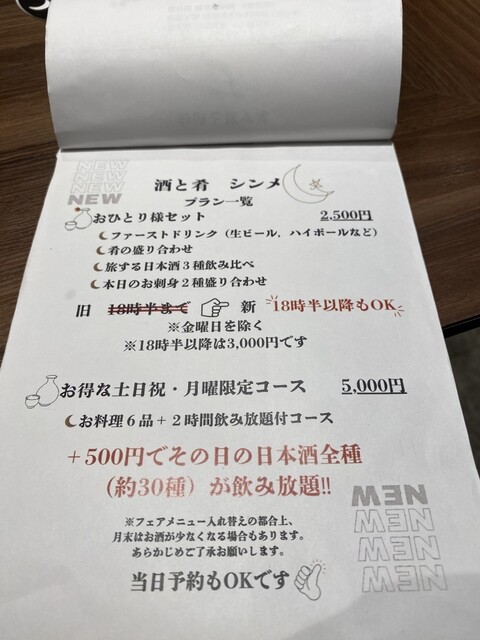 NEW
NEW
NEW
NEW
酒と肴 シンメ
プラン一覧
おひとり様セット 2,500円
ファーストドリンク（生ビール，ハイボールなど）
肴の盛り合わせ
旅する日本酒３種飲み比べ
本日のお刺身２種盛り合わせ
旧 18時半まで 新 18時半以降もOK
※金曜日を除く
※18時半以降は3,000円です
お得な土日祝・月曜限定コース 5,000円
お料理６品＋２時間飲み放題付コース
＋500円でその日の日本酒全種
（約30種）が飲み放題!!
※フェアメニュー入れ替えの都合上、
月末はお酒が少なくなる場合もあります。
あらかじめご了承お願いします。
当日予約もOKです
NEW
NEW
NEW
NEW